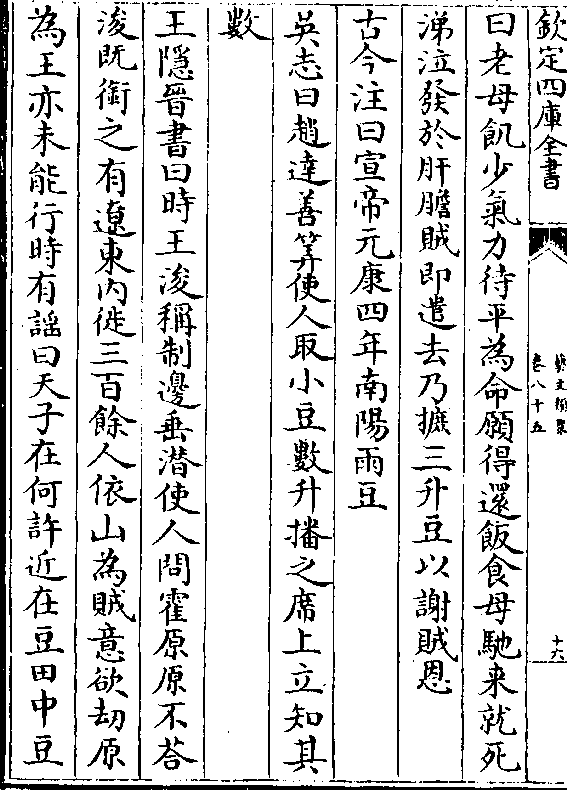 欽定四庫全書
藝文類聚
卷八十五
十六
曰老母飢少氣力待平為命願得還飯食母馳来就死
涕泣發於肝膽賊即遣去乃摭三升豆以謝賊恩
古今注曰宣帝元康四年南陽雨豆
吳志曰趙達善筭使人取小豆數升播之席上立知其
數
王隱晉書曰時王浚稱制邊垂潜使人問霍原原不荅
浚既銜之有遼東内徙三百餘人依山為賊意欲刧原
為王亦未能行時有謡曰天子在何許近在豆田中豆